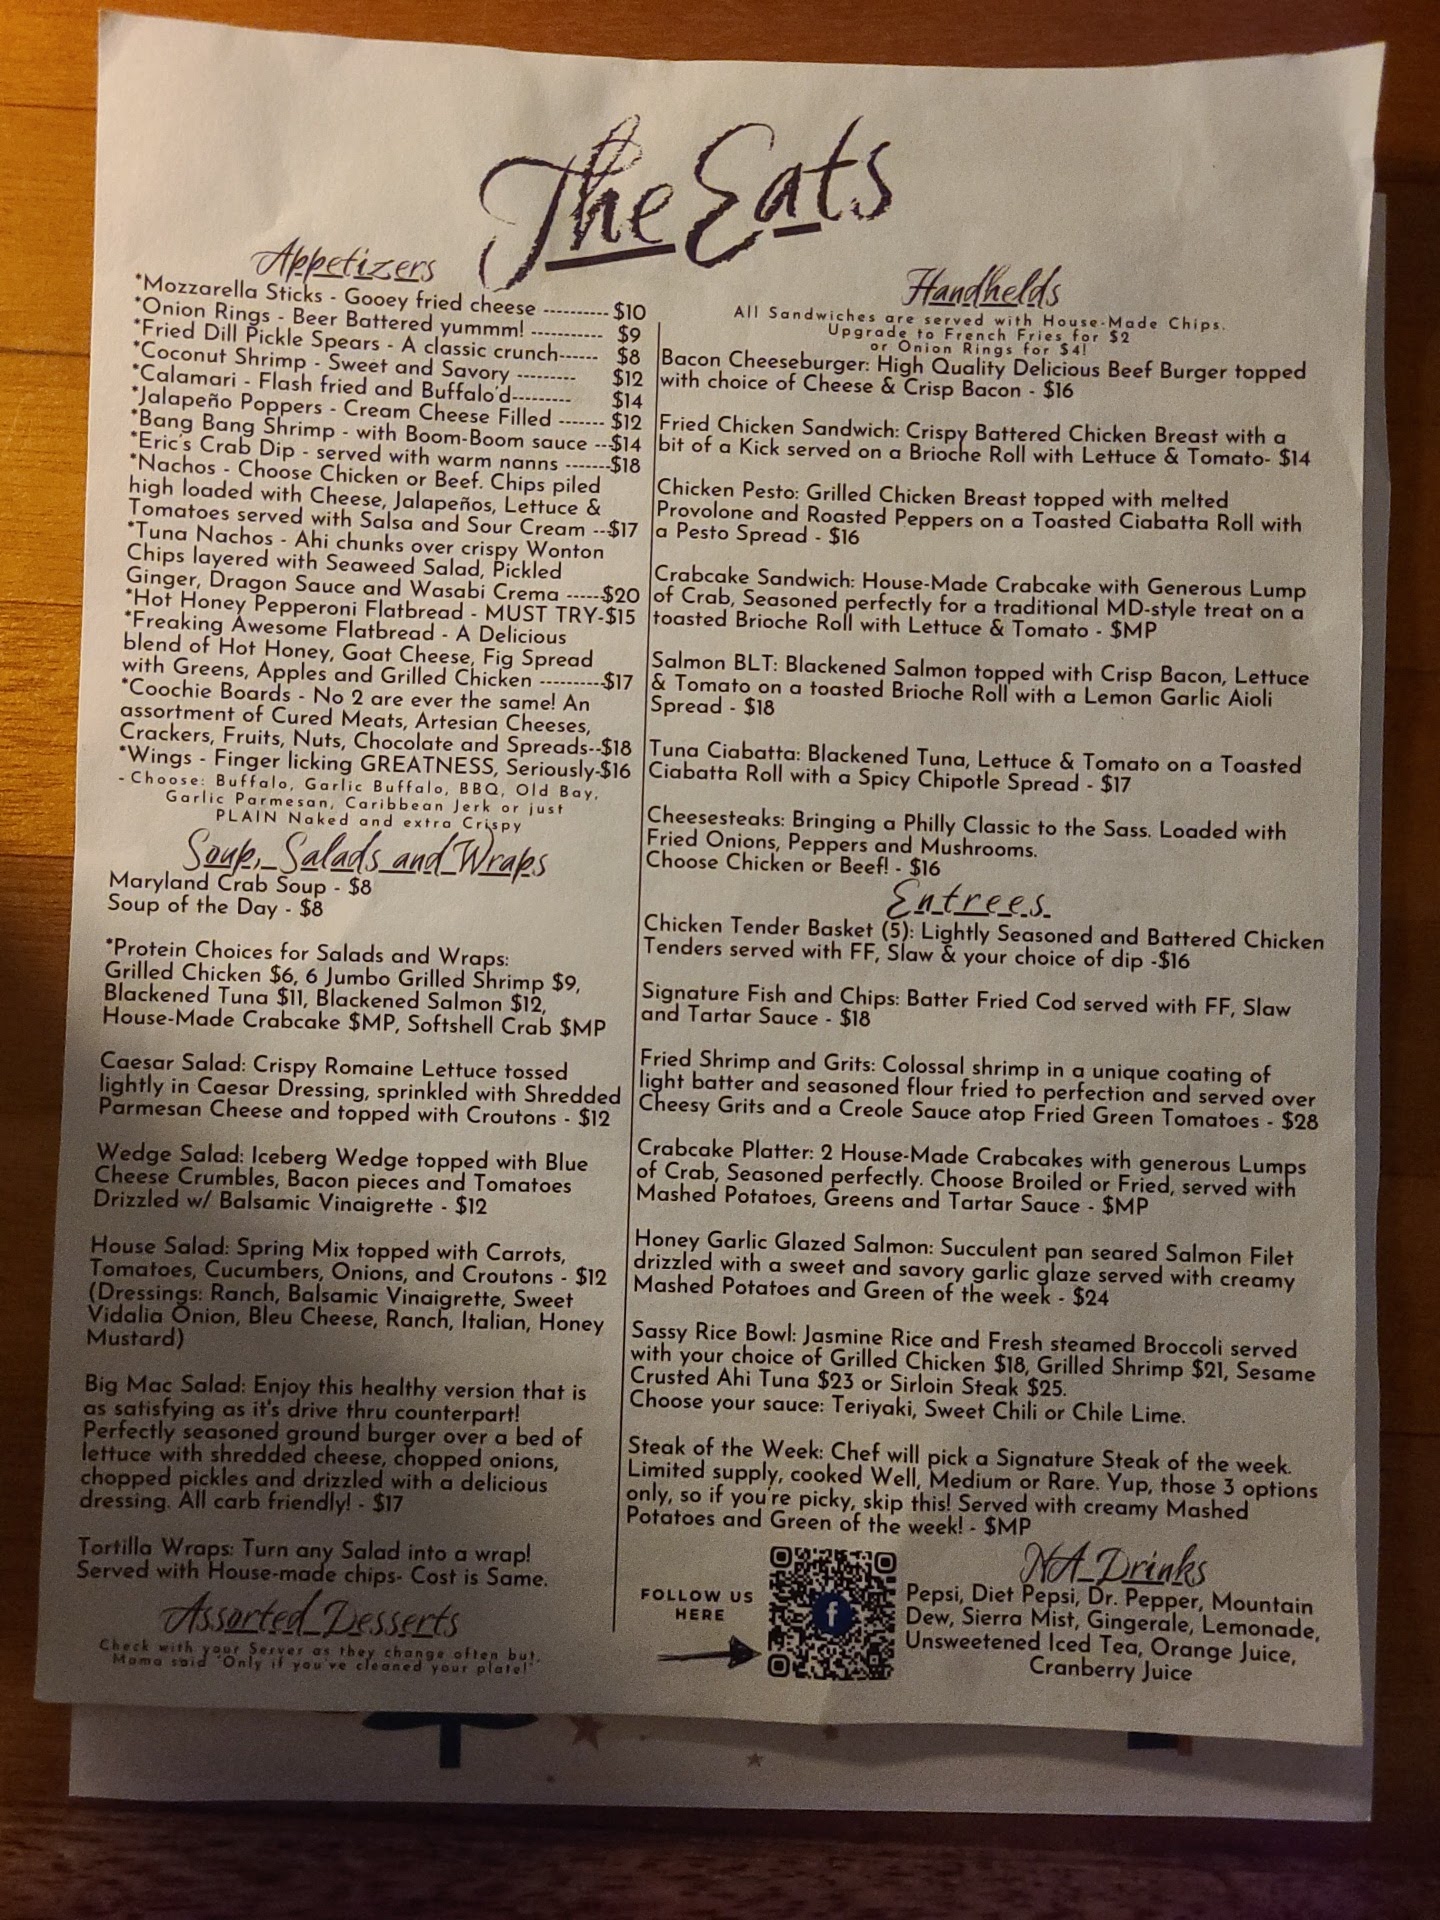 The Eats
Appetizers
*Mozzarella Sticks - Gooey fried cheese ---------- $10
*Onion Rings - Beer Battered yummm! ----------- $9
*Fried Dill Pickle Spears - A classic crunch------ $8
*Coconut Shrimp - Sweet and Savory --------- $12
*Calamari - Flash fried and Buffalo'd--------- $14
*Jalapeño Poppers - Cream Cheese Filled ------- $12
*Bang Bang Shrimp - with Boom-Boom sauce ---$14
*Eric's Crab Dip - served with warm nanns -------$18
*Nachos - Choose Chicken or Beef. Chips piled
high loaded with Cheese, Jalapeños, Lettuce &
Tomatoes served with Salsa and Sour Cream --$17
*Tuna Nachos - Ahi chunks over crispy Wonton
Chips layered with Seaweed Salad, Pickled
Ginger, Dragon Sauce and Wasabi Crema -----$20
*Hot Honey Pepperoni Flatbread - MUST TRY-$15
*Freaking Awesome Flatbread - A Delicious
blend of Hot Honey, Goat Cheese, Fig Spread
with Greens, Apples and Grilled Chicken ----------$17
*Coochie Boards - No 2 are ever the same! An
assortment of Cured Meats, Artesian Cheeses,
Crackers, Fruits, Nuts, Chocolate and Spreads--$18
*Wings - Finger licking GREATNESS, Seriously-$16
- Choose: Buffalo, Garlic Buffalo, BBQ, Old Bay,
Garlic Parmesan, Caribbean Jerk or just
PLAIN Naked and extra Crispy
Soup, Salads and Wraps
Maryland Crab Soup - $8
Soup of the Day - $8
*Protein Choices for Salads and Wraps:
Grilled Chicken $6, 6 Jumbo Grilled Shrimp $9,
Blackened Tuna $11, Blackened Salmon $12,
House-Made Crabcake $MP, Softshell Crab $MP
Caesar Salad: Crispy Romaine Lettuce tossed
lightly in Caesar Dressing, sprinkled with Shredded
Parmesan Cheese and topped with Croutons - $12
Wedge Salad: Iceberg Wedge topped with Blue
Cheese Crumbles, Bacon pieces and Tomatoes
Drizzled w/ Balsamic Vinaigrette - $12
House Salad: Spring Mix topped with Carrots,
Tomatoes, Cucumbers, Onions, and Croutons - $12
(Dressings: Ranch, Balsamic Vinaigrette, Sweet
Vidalia Onion, Bleu Cheese, Ranch, Italian, Honey
Mustard)
Big Mac Salad: Enjoy this healthy version that is
as satisfying as it's drive thru counterpart!
Perfectly seasoned ground burger over a bed of
lettuce with shredded cheese, chopped onions,
chopped pickles and drizzled with a delicious
dressing. All carb friendly! - $17
Tortilla Wraps: Turn any Salad into a wrap!
Served with House-made chips- Cost is Same.
Assorted Desserts
Check with your Server as they change often but,
Mama said "Only if you've cleaned your plate!"
Handhelds
All Sandwiches are served with House-Made Chips.
Upgrade to French Fries for $2
or Onion Rings for $4!
Bacon Cheeseburger: High Quality Delicious Beef Burger topped
with choice of Cheese & Crisp Bacon - $16
Fried Chicken Sandwich: Crispy Battered Chicken Breast with a
bit of a Kick served on a Brioche Roll with Lettuce & Tomato- $14
Chicken Pesto: Grilled Chicken Breast topped with melted
Provolone and Roasted Peppers on a Toasted Ciabatta Roll with
a Pesto Spread - $16
Crabcake Sandwich: House-Made Crabcake with Generous Lump
of Crab, Seasoned perfectly for a traditional MD-style treat on a
toasted Brioche Roll with Lettuce & Tomato - $MP
Salmon BLT: Blackened Salmon topped with Crisp Bacon, Lettuce
& Tomato on a toasted Brioche Roll with a Lemon Garlic Aioli
Spread - $18
Tuna Ciabatta: Blackened Tuna, Lettuce & Tomato on a Toasted
Ciabatta Roll with a Spicy Chipotle Spread - $17
Cheesesteaks: Bringing a Philly Classic to the Sass. Loaded with
Fried Onions, Peppers and Mushrooms.
Choose Chicken or Beef! - $16
Entrees
Chicken Tender Basket (5): Lightly Seasoned and Battered Chicken
Tenders served with FF, Slaw & your choice of dip -$16
Signature Fish and Chips: Batter Fried Cod served with FF, Slaw
and Tartar Sauce - $18
Fried Shrimp and Grits: Colossal shrimp in a unique coating of
light batter and seasoned flour fried to perfection and served over
Cheesy Grits and a Creole Sauce atop Fried Green Tomatoes - $28
Crabcake Platter: 2 House-Made Crabcakes with generous Lumps
of Crab, Seasoned perfectly. Choose Broiled or Fried, served with
Mashed Potatoes, Greens and Tartar Sauce - $MP
Honey Garlic Glazed Salmon: Succulent pan seared Salmon Filet
drizzled with a sweet and savory garlic glaze served with creamy
Mashed Potatoes and Green of the week - $24
Sassy Rice Bowl: Jasmine Rice and Fresh steamed Broccoli served
with your choice of Grilled Chicken $18, Grilled Shrimp $21, Sesame
Crusted Ahi Tuna $23 or Sirloin Steak $25.
Choose your sauce: Teriyaki, Sweet Chili or Chile Lime.
Steak of the Week: Chef will pick a Signature Steak of the week.
Limited supply, cooked Well, Medium or Rare. Yup, those 3 options
only, so if you're picky, skip this! Served with creamy Mashed
Potatoes and Green of the week! - $MP
FOLLOW US
HERE
f
NA Drinks
Pepsi, Diet Pepsi, Dr. Pepper, Mountain
Dew, Sierra Mist, Gingerale, Lemonade,
Unsweetened Iced Tea, Orange Juice,
Cranberry Juice